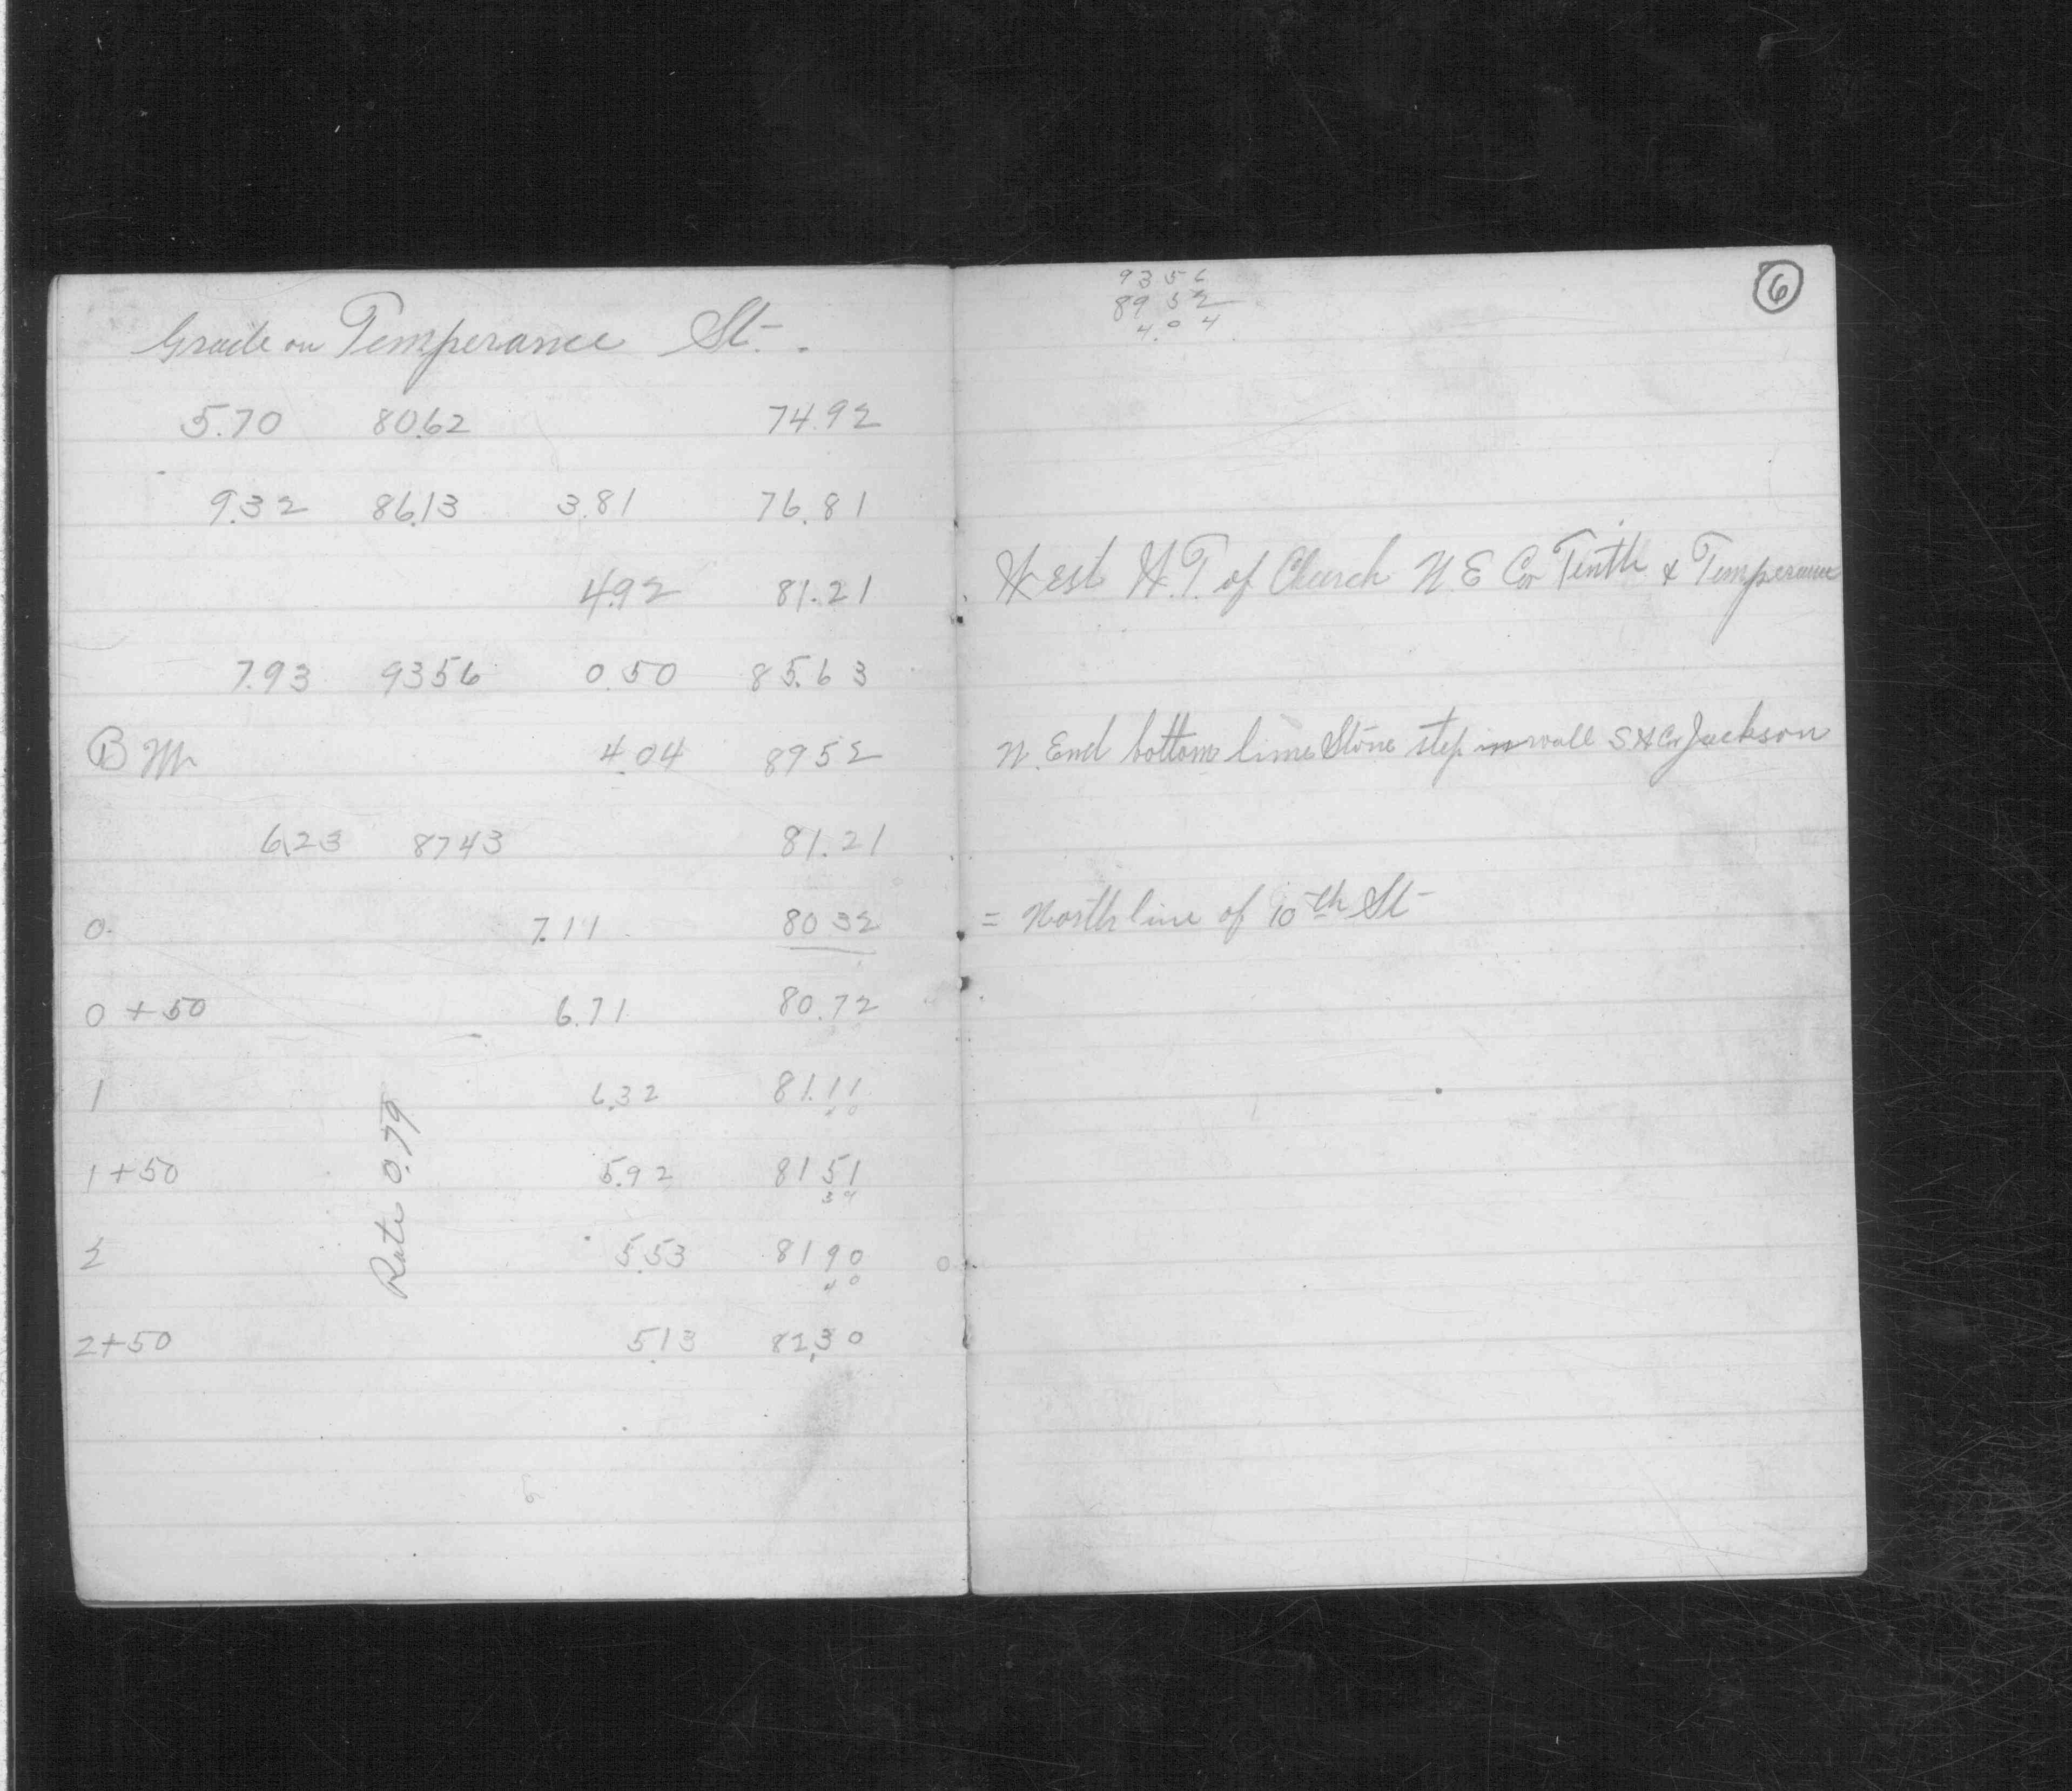 Grade on Temperance St.
5.70 80.62 74.92
9.32 86.13 3.81 76.81
4.92 81.21
7.93 9356 0.50 85.63
B M 4.04 8952
6.23 8743 81.21
0 7.11 8032
0 + 50 6.71 80.72
1 6.32 81.11
40
1 + 50 5.92 8151
39
2 5.53 8190
40
2+50 5.13 82.30
Rate 0.79
6
9356
8952
4.04
West W.T. of Church N.E Cor Tenth & Temperance
N. End bottom lime Stone step in wall S W Cor Jackson
= North line of 10th St